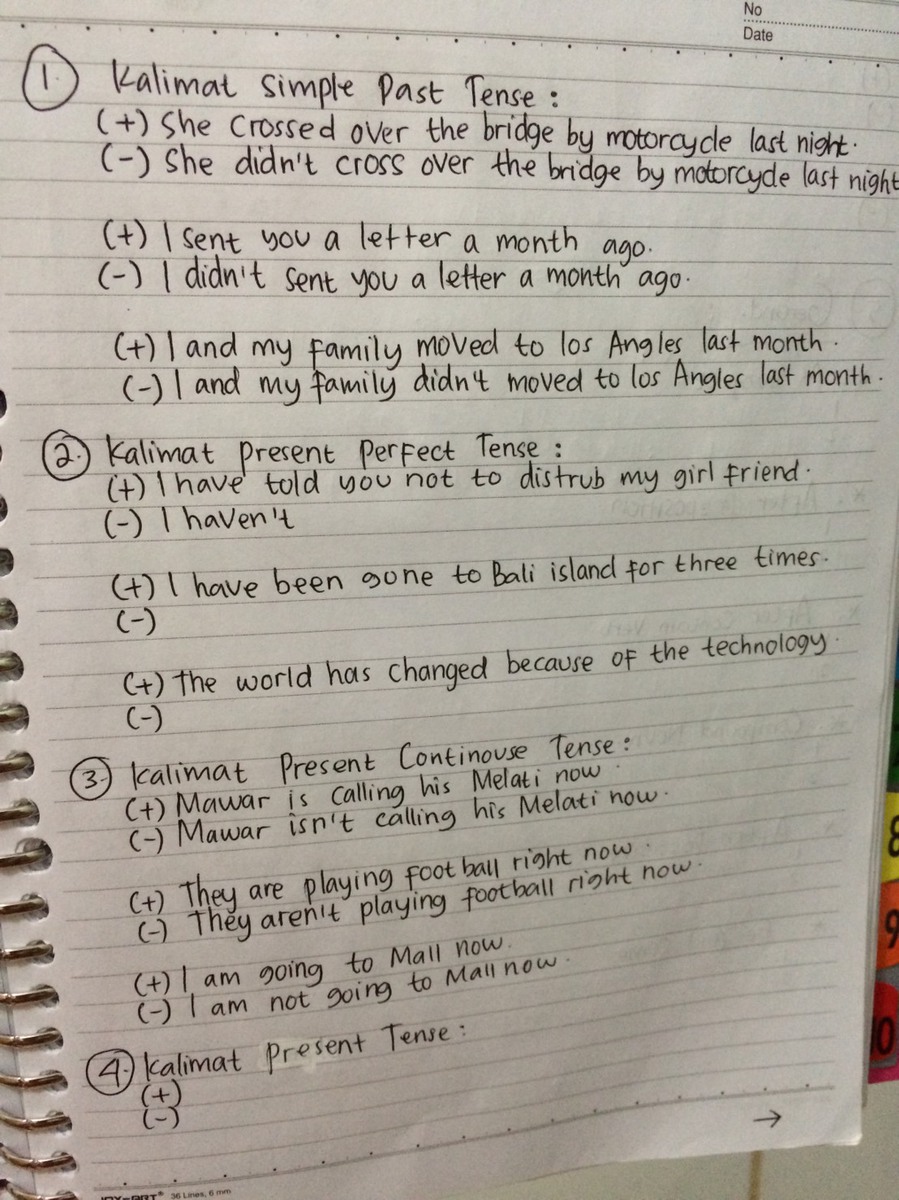 No
Date
1. Kalimat Simple Past Tense :
(+) She crossed over the bridge by motorcycle last night.
(-) She didn't cross over the bridge by motorcycle last night
(+) I sent you a letter a month ago.
(-) I didn't sent you a letter a month ago.
(+) I and my family moved to los Angles last month.
(-) I and my family didn't moved to los Angles last month.
2. Kalimat Present Perfect Tense :
(+) I have told you not to distrub my girl friend.
(-) I haven't
(+) I have been gone to Bali island for three times.
(-)
(+) The world has changed because of the technology.
(-)
3. Kalimat Present Continouse Tense :
(+) Mawar is calling his Melati now.
(-) Mawar isn't calling his Melati now.
(+) They are playing foot ball right now.
(-) They aren't playing football right now.
(+) I am going to Mall now.
(-) I am not going to Mall now.
4. Kalimat Present Tense :
(+)
(-)
→
36 Lines, 6 mm
8
9
10